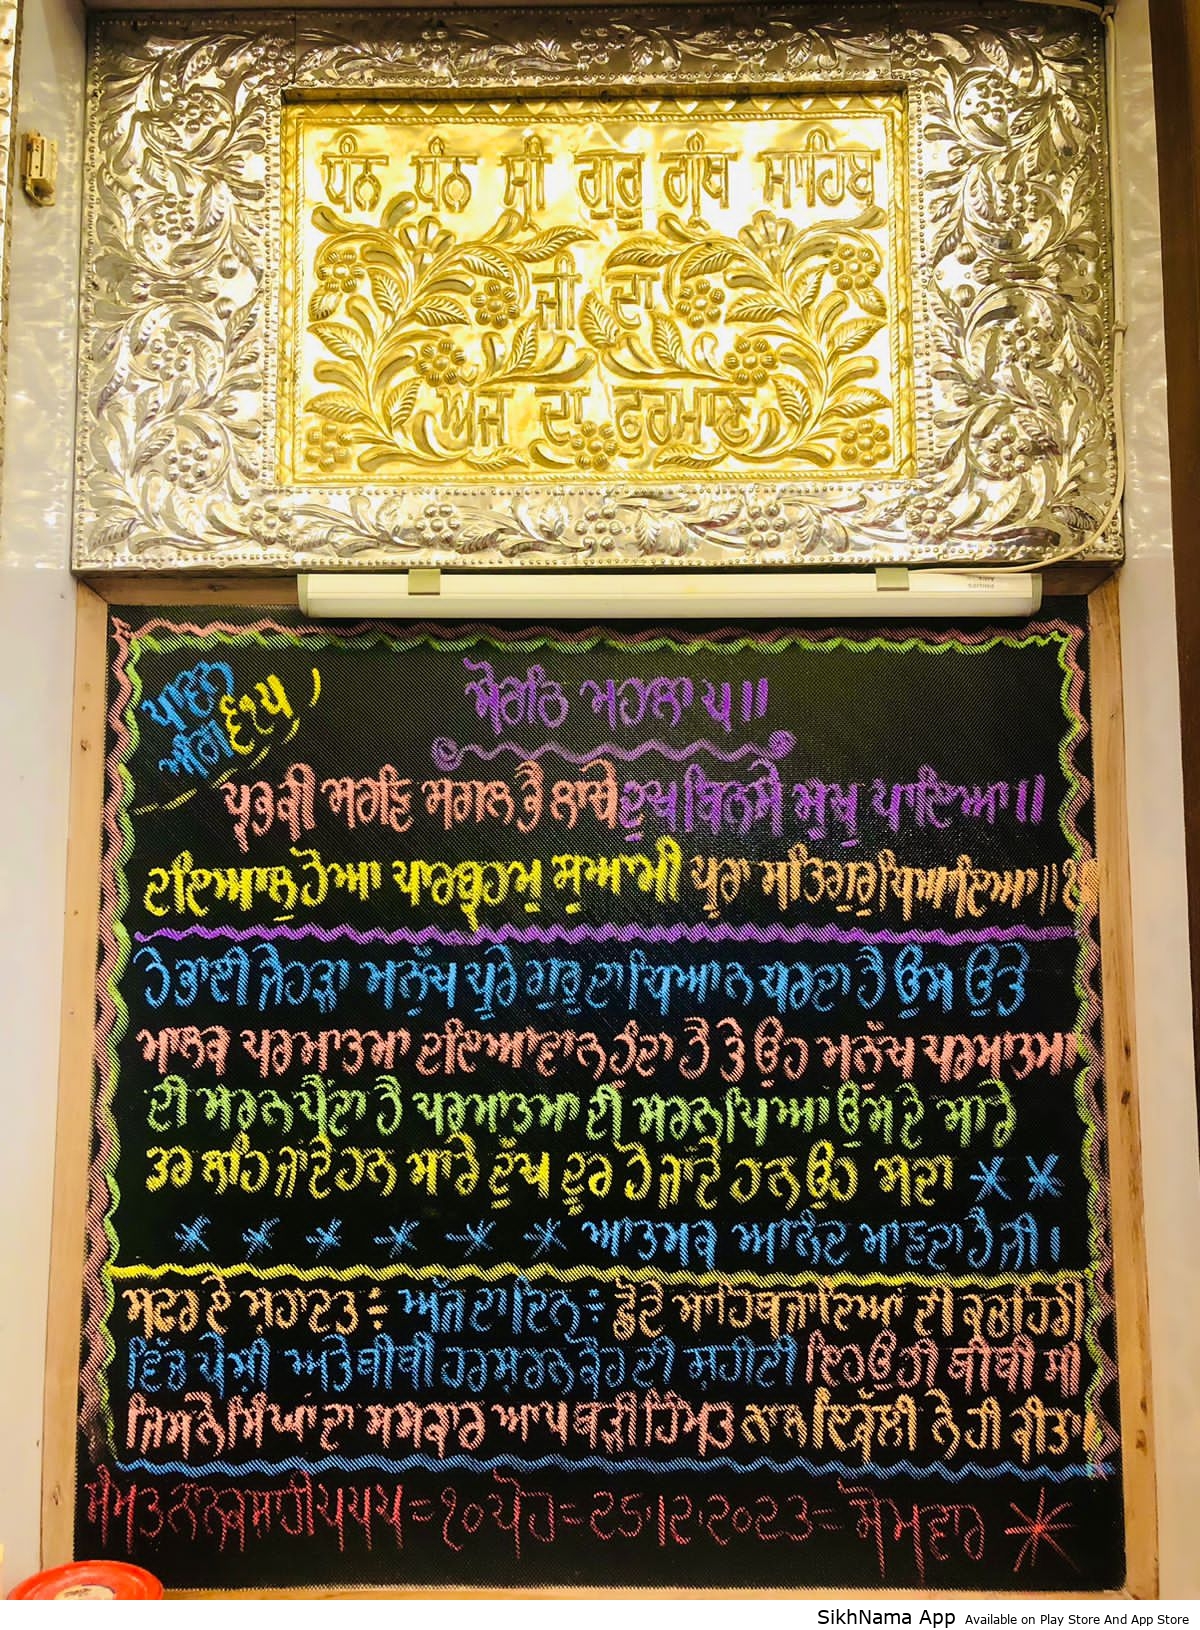 ਧੰਨ ਧੰਨ ਸ੍ਰੀ ਗੁਰੂ ਗ੍ਰੰਥ ਸਾਹਿਬ
ਜੀ ਦਾ
ਅਜ ਦਾ ਫੁਰਮਾਣ
ਪਾਵਨ
ਅੰਗ ੬੧੫
ਸੋਰਠਿ ਮਹਲਾ ੫॥
ਪ੍ਰਭ ਕੀ ਸਰਣਿ ਸਗਲ ਭੈ ਲਾਥੇ ਦੁਖ ਬਿਨਸੇ ਸੁਖੁ ਪਾਇਆ॥
ਦਇਆਲੁ ਹੋਆ ਪਾਰਬ੍ਰਹਮੁ ਸੁਆਮੀ ਪੂਰਾ ਸਤਿਗੁਰੁ ਧਿਆਇਆ॥੧॥
ਹੇ ਭਾਈ ਜੇਹੜਾ ਮਨੁੱਖ ਪੂਰੇ ਗੁਰੂ ਦਾ ਧਿਆਨ ਧਰਦਾ ਹੈ ਉਸ ਉਤੇ
ਮਾਲਕ ਪਰਮਾਤਮਾ ਦਇਆਵਾਨ ਹੁੰਦਾ ਹੈ ਤੇ ਉਹ ਮਨੁੱਖ ਪਰਮਾਤਮਾ
ਦੀ ਸਰਨ ਪੈਂਦਾ ਹੈ ਪਰਮਾਤਮਾ ਦੀ ਸਰਨ ਪਿਆਂ ਉਸ ਦੇ ਸਾਰੇ
ਡਰ ਲਹਿ ਜਾਂਦੇ ਹਨ ਸਾਰੇ ਦੁੱਖ ਦੂਰ ਹੋ ਜਾਂਦੇ ਹਨ ਉਹ ਸਦਾ * *
* * * * * * ਆਤਮਕ ਆਨੰਦ ਮਾਣਦਾ ਹੈ ਜੀ।
ਸਫਰ ਏ ਸ਼ਹਾਦਤ ÷ ਅੱਜ ਦਾ ਦਿਨ ÷ ਛੋਟੇ ਸਾਹਿਬਜਾਦਿਆਂ ਦੀ ਕਚਹਿਰੀ
ਵਿੱਚ ਪੇਸ਼ੀ ਅਤੇ ਬੀਬੀ ਹਰਸ਼ਰਨ ਕੌਰ ਦੀ ਸ਼ਹੀਦੀ ਇਹ ਉਹੀ ਬੀਬੀ ਸੀ
ਜਿਸਨੇ ਸਿੰਘਾਂ ਦਾ ਸਸਕਾਰ ਆਪ ਬੜੀ ਹਿੰਮਤ ਨਾਲ ਇਕੱਲੀ ਨੇ ਹੀ ਕੀਤਾ।
ਸੰਮਤ ਨਾਨਕਸ਼ਾਹੀ ੫੫੫ = ੧੦ ਪੋਹ = ੨੫।੧੨।੨੦੨੩ = ਸੋਮਵਾਰ *
SikhNama App Available on Play Store And App Store